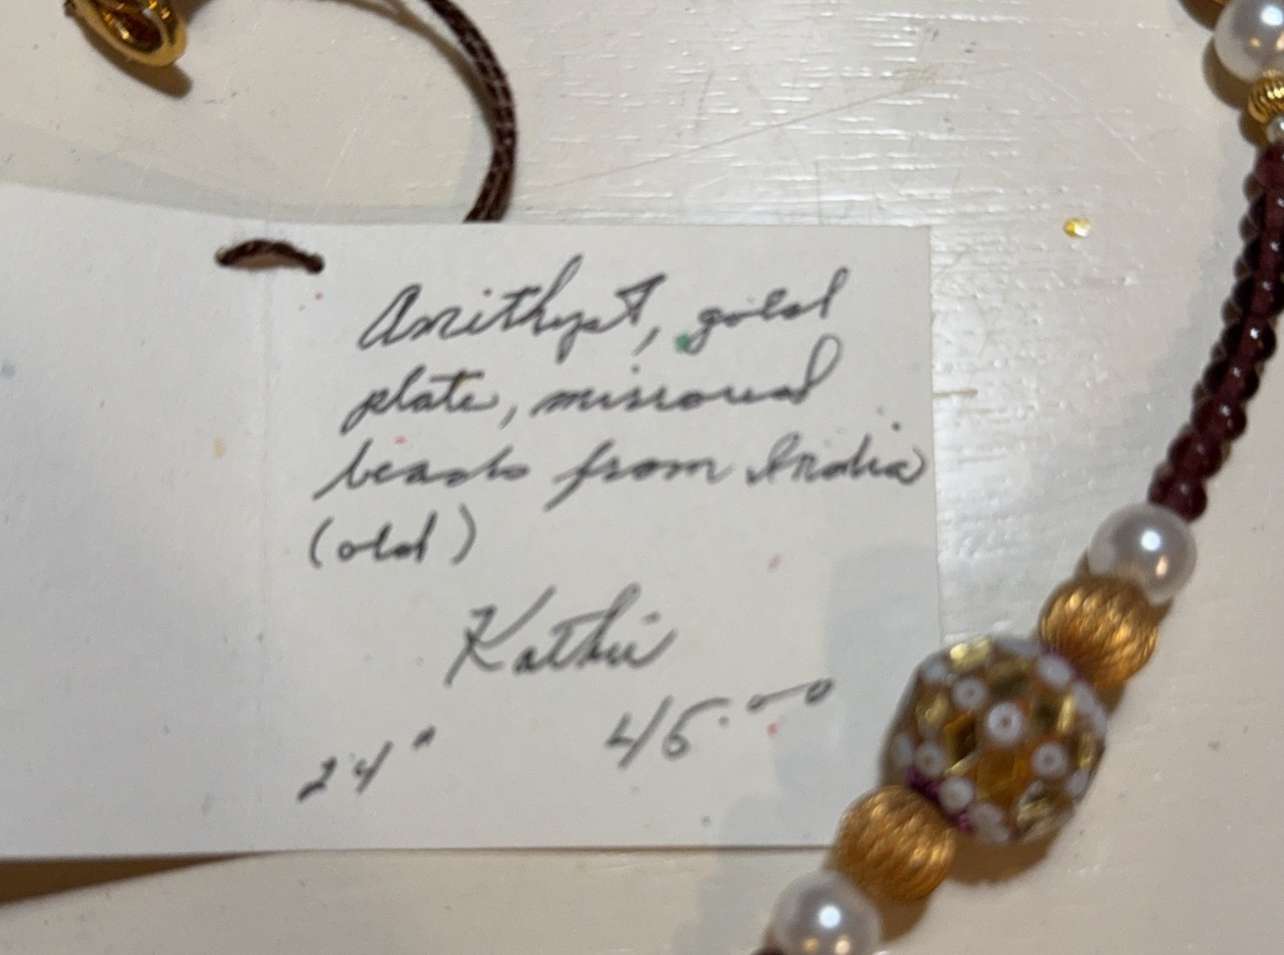 Amithyst, gold
plate, mirrored
beads from India
(old)
Kathie
24" 45.00